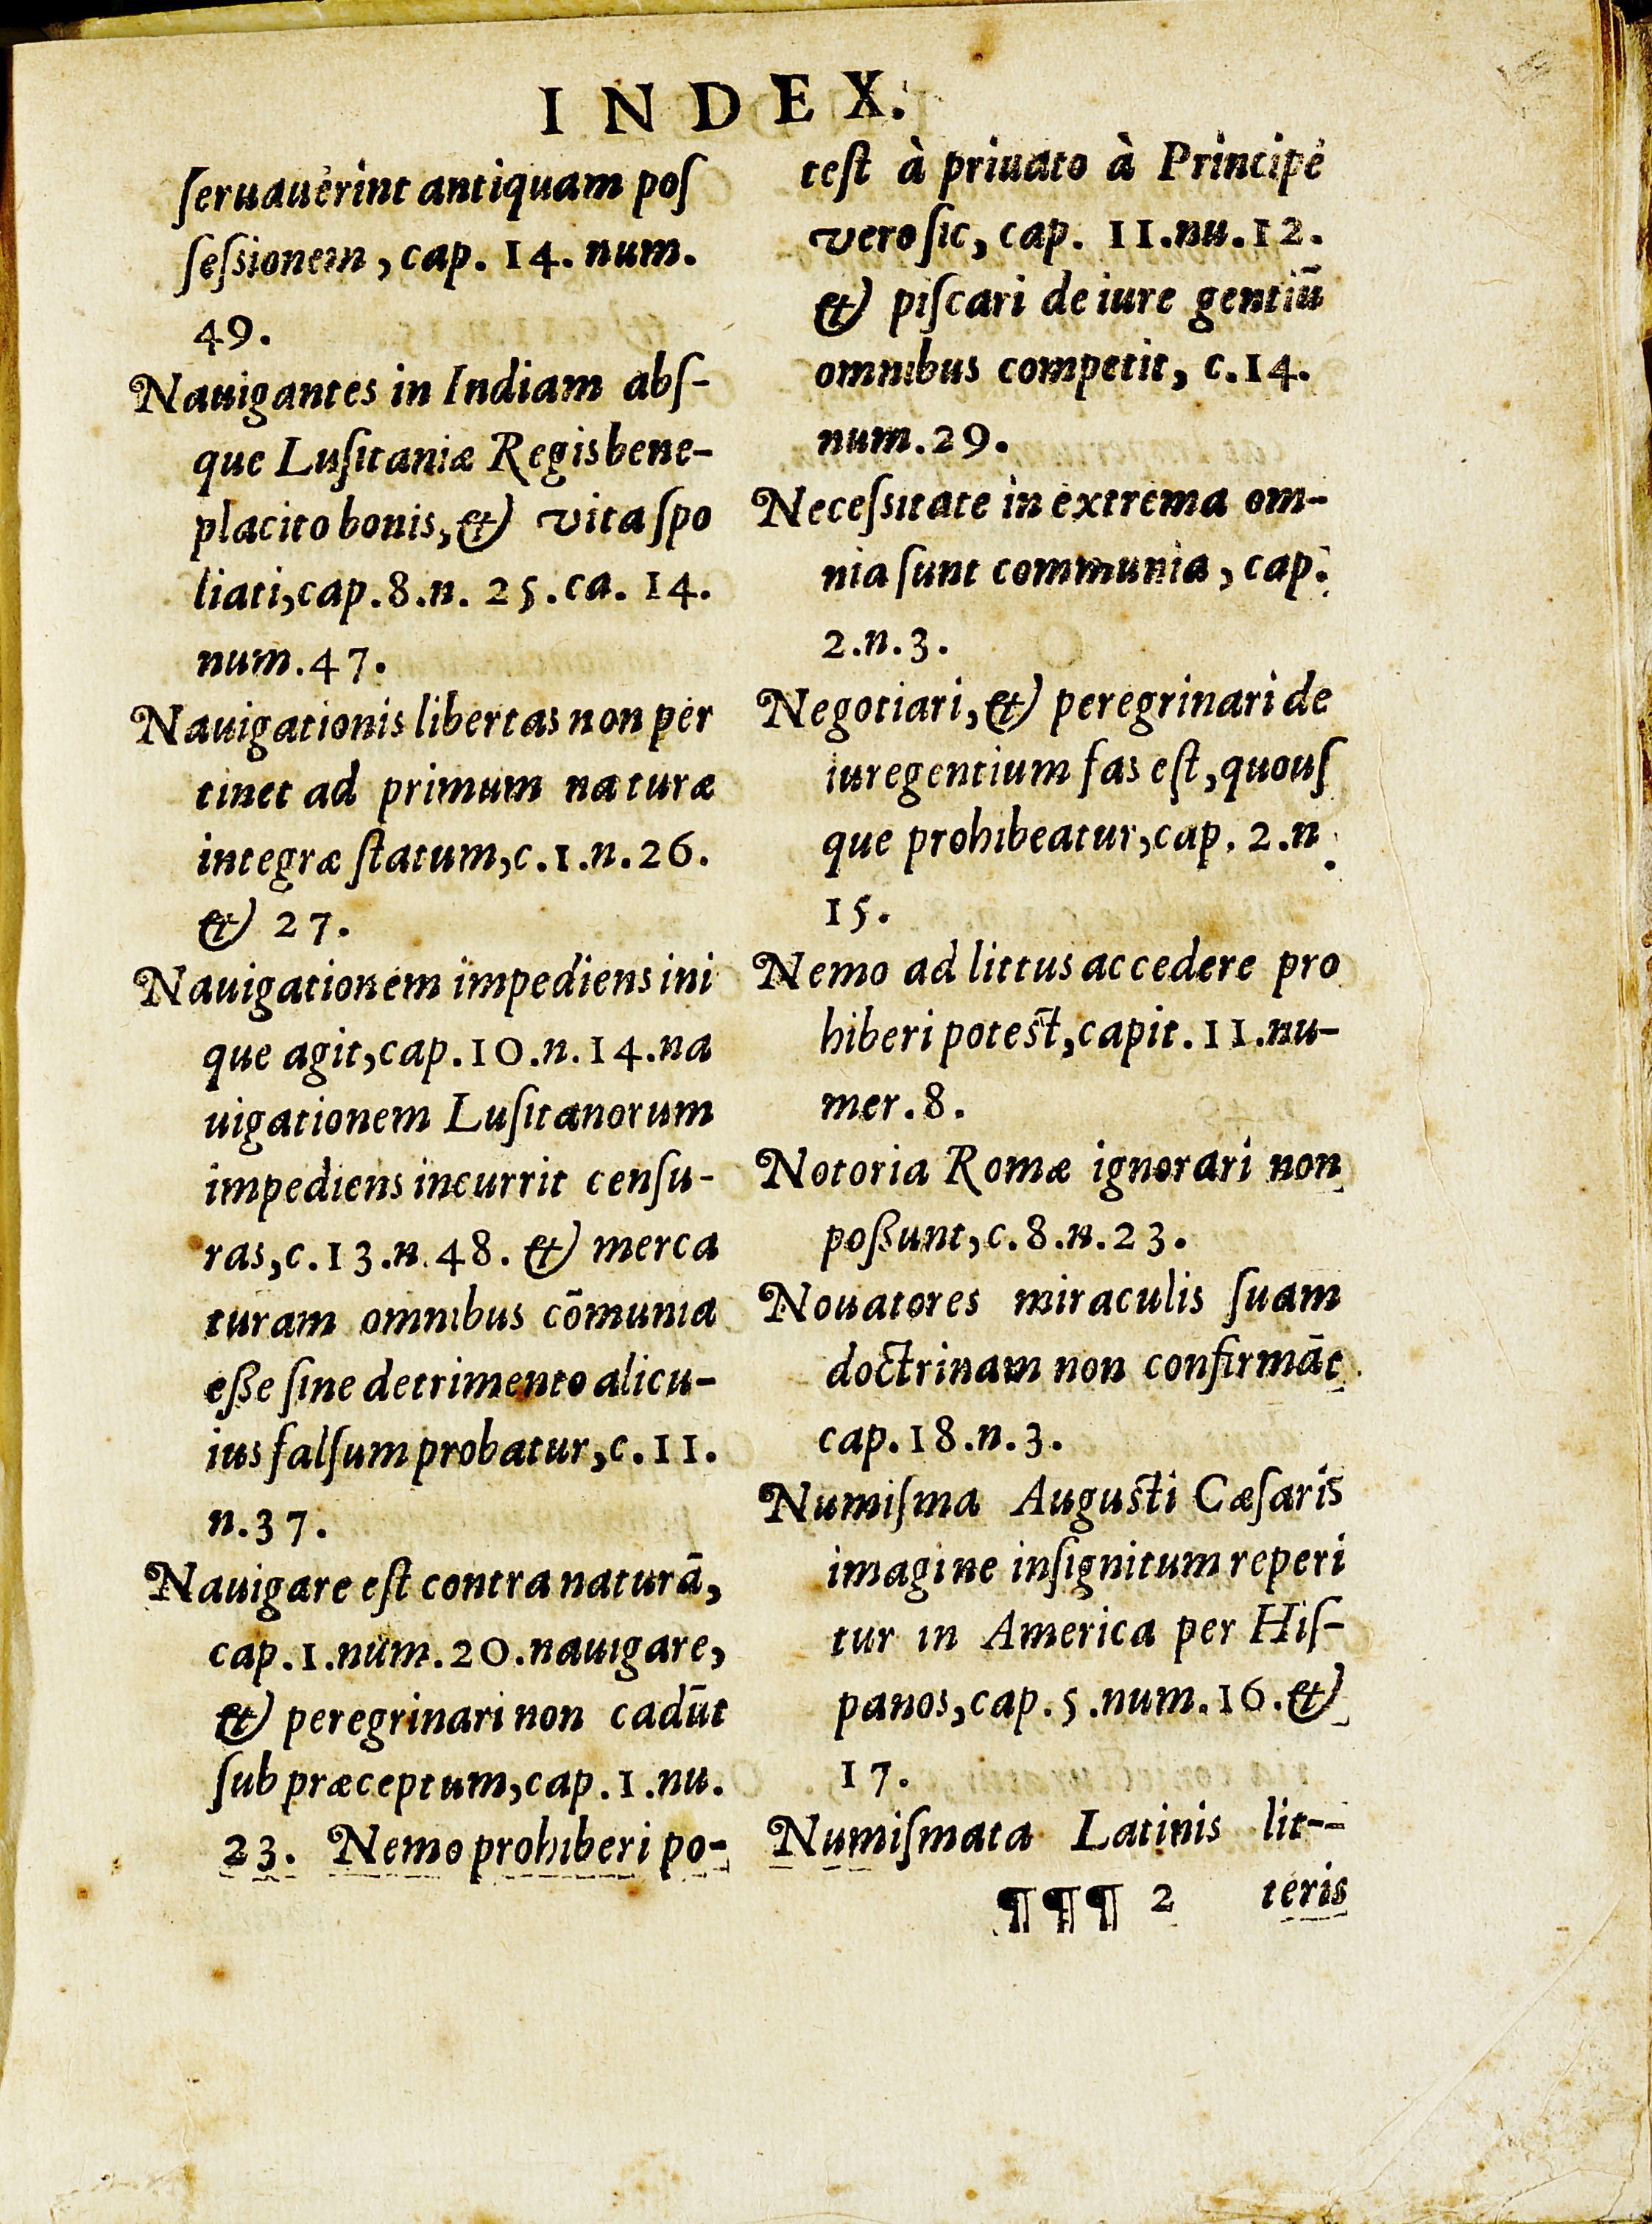 INDEX.
ſeruauerint antiquam poſ
ſeſsionem, cap. 14. num.
49.
Nauigantes in Indiam abſ-
que Luſitaniæ Regis bene-
placito bonis, & vita ſpo
liati, cap. 8. n. 25. ca. 14.
num. 47.
Nauigationis libertas non per
tinet ad primum naturæ
integræ ſtatum, c. 1. n. 26.
& 27.
Nauigationem impediens ini
que agit, cap. 10. n. 14. na
uigationem Luſitanorum
impediens incurrit cenſu-
ras, c. 13. n. 48. & merca
turam omnibus cōmunia
eße ſine detrimento alicu-
ius falſum probatur, c. 11.
n. 37.
Nauigare eſt contra naturā,
cap. 1. num. 20. nauigare,
& peregrinari non cadūt
ſub præceptum, cap. 1. nu.
23. Nemo prohiberi po-
teſt à priuato à Principe
vero ſic, cap. 11. nu. 12.
& piſcari de iure gentiū
omnibus competit, c. 14.
num. 29.
Neceſsitate in extrema om-
nia ſunt communia, cap.
2. n. 3.
Negotiari, & peregrinari de
iure gentium fas eſt, quouſ
que prohibeatur, cap. 2. n.
15.
Nemo ad littus accedere pro
hiberi poteſt, capit. 11. nu-
mer. 8.
Notoria Romæ ignorari non
poßunt, c. 8. n. 23.
Nouatores miraculis ſuam
doctrinam non confirmāt
cap. 18. n. 3.
Numiſma Auguſti Cæſaris
imagine inſignitum reperi
tur in America per Hiſ-
panos, cap. 5. num. 16. &
17.
Numiſmata Latinis lit-
¶¶¶ 2 teris